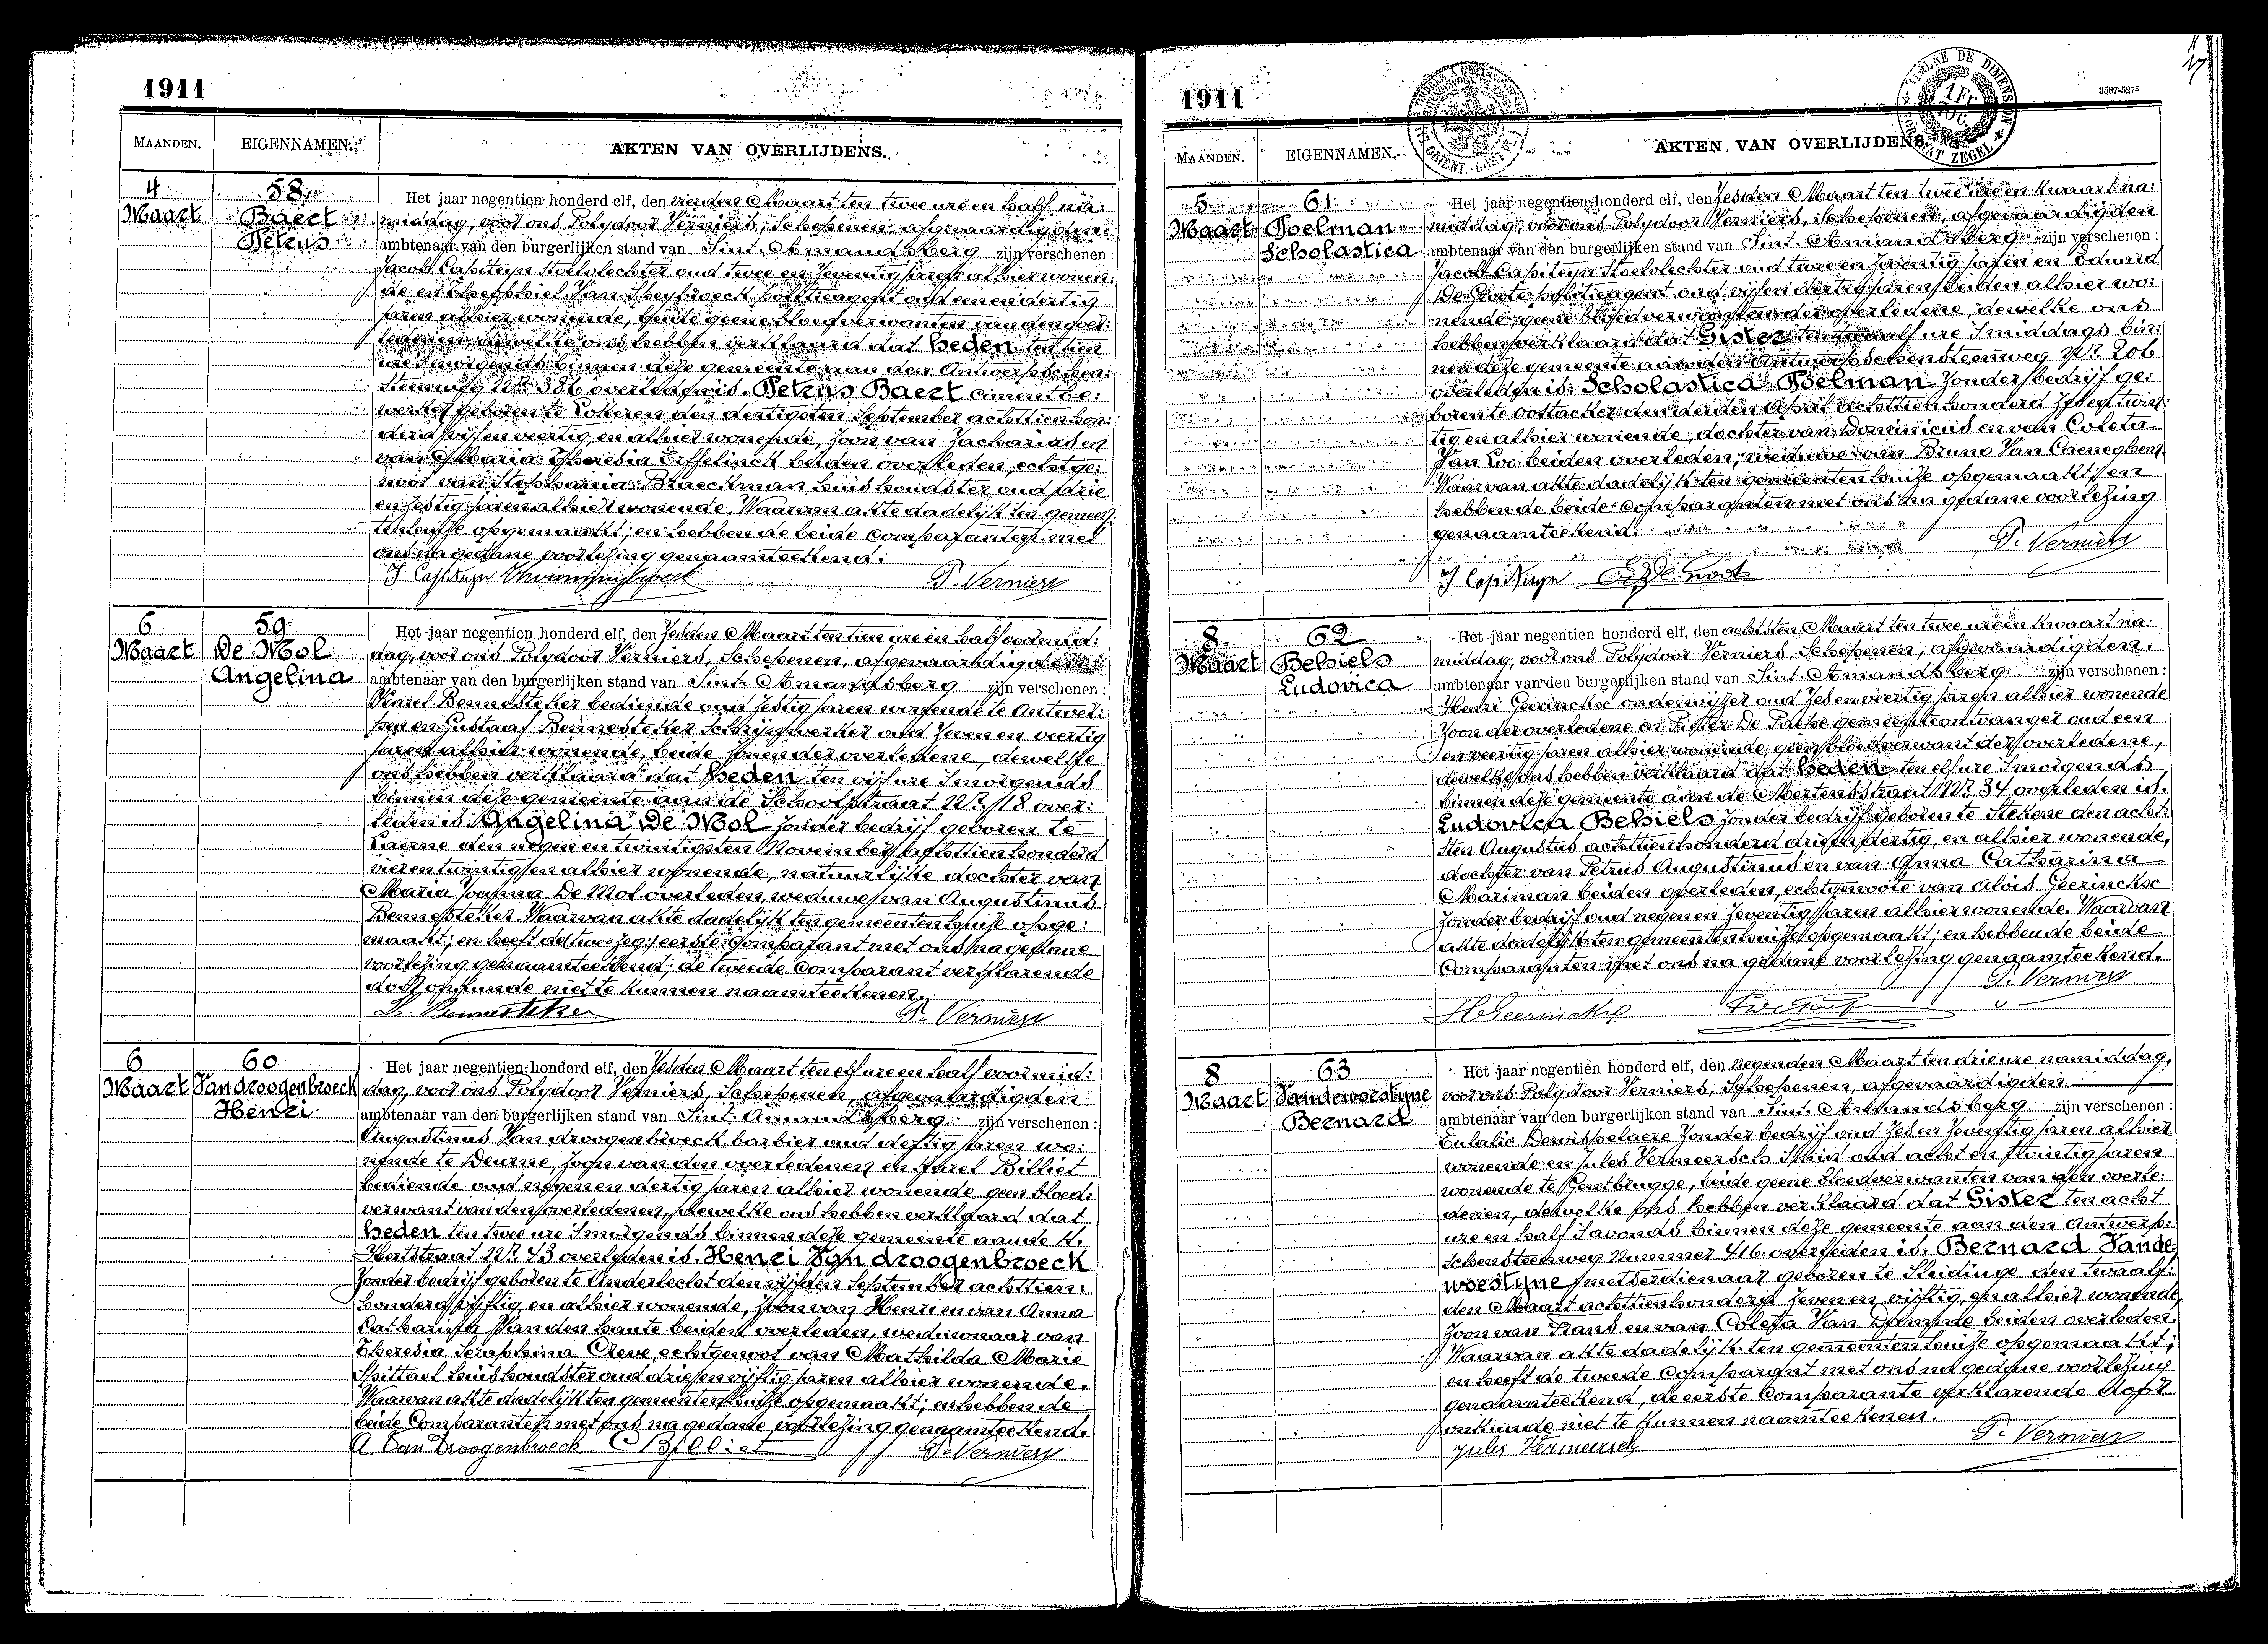 1911
MAANDEN.
EIGENNAMEN.
AKTEN VAN OVERLIJDENS.
4
Maart
58
Baert
Petrus
Het jaar negentien honderd elf, den vierden Maart ten twee ure en half na:
middag, voor ons Polydoor Verniers, Schepenen, afgevaardigden
ambtenaar van den burgerlijken stand van Sint. Amandsberg zijn verschenen:
Jacob Capiteyn stoelvlechter oud twee en zeventig jaren alhier wonen:
de en Theophiel Van Speybroeck politieagent oud een en dertig
jaren alhier wonende, beide geene bloedverwanten van den over:
ledenen, dewelke ons hebben verklaard dat heden ten tien
ure 'smorgends binnen deze gemeente aan den Antwerpschen:
steenweg Nr. 386 overleden is. Petrus Baert cimentbe:
werker geboren te Lokeren den dertigsten September achttien hon:
derd vijf en veertig en alhier wonende, zoon van Zacharias en
van Maria Theresia Effelinck beiden overleden, echtge:
noot van Stephania Blaeckman huishoudster oud drie
en zestig jaren alhier wonende. Waarvan akte dadelijk ten gemeen:
tenhuize opgemaakt; en hebben de beide Comparanten met
ons na gedane voorlezing genaamteekend.
J Capiteyn P. Verniers
6
Maart
59
De Mol
Angelina
Het jaar negentien honderd elf, den Zesden Maart ten tien ure en half voormid:
dag, voor ons Polydoor Verniers, Schepenen, afgevaardigden
ambtenaar van den burgerlijken stand van Sint. Amandsberg zijn verschenen:
Karel Bennesteker bediende oud zestig jaren wonende te Antwer:
pen en Gustaaf Bennesteker schrijnwerker oud zeven en veertig
jaren alhier wonende, beide zonen der overledene, dewelke
ons hebben verklaard dat heden ten vijf ure 'smorgends
binnen deze gemeente aan de Schoolstraat Nr. 18 over:
leden is. Angelina De Mol zonder bedrijf geboren te
Laerne den negen en twintigsten November achttien honderd
vier en twintig en alhier wonende, natuurlijke dochter van
Maria Joanna De Mol overleden, weduwe van Augustinus
Bennesteker. Waarvan akte dadelijk ten gemeentenhuize opge:
maakt; en heeft de eerste Comparant met ons na gedane
voorlezing genaamteekend; de tweede Comparant verklarende
door onkunde niet te kunnen naamteekenen.
K. Bennesteker P. Verniers
6
Maart
60
Vandroogenbroeck
Henri
Het jaar negentien honderd elf, den Zesden Maart ten elf ure en half voormid:
dag, voor ons Polydoor Verniers, Schepenen, afgevaardigden
ambtenaar van den burgerlijken stand van Sint. Amandsberg zijn verschenen:
Augustinus Van droogenbroeck barbier oud dertig jaren wo:
nende te Deurne, zoon van den overledenen en Karel Billiet
bediende oud negen en dertig jaren alhier wonende geen bloed:
verwant van den overledenen, dewelke ons hebben verklaard dat
heden ten twee ure 'smorgends binnen deze gemeente aan de H.
Hertstraat Nr. 43 overleden is. Henri Van droogenbroeck
zonder bedrijf geboren te Anderlecht den vijfden September achttien:
honderd vijftig en alhier wonende, zoon van Henri en van Anna
Catharina Van den haute beiden overleden, weduwnaar van
Theresia Seraphina Creve, echtgenoot van Mathilda Marie
Spittael huishoudster oud drie en vijftig jaren alhier wonende.
Waarvan akte dadelijk ten gemeentenhuize opgemaakt; en hebben de
beide Comparanten met ons na gedane voorlezing genaamteekend.
A. Van Droogenbroeck C Billiet P. Verniers
1911
3587-5275
MAANDEN.
EIGENNAMEN.
AKTEN VAN OVERLIJDENS
5
Maart
61
Poelman
Scholastica
Het jaar negentien honderd elf, den Zesden Maart ten twee ure en kwaart na:
middag, voor ons Polydoor Verniers, Schepenen, afgevaardigden
ambtenaar van den burgerlijken stand van Sint. Amandsberg zijn verschenen:
Jacob Capiteyn stoelvlechter oud twee en zeventig jaren en Eduard
De Groote politieagent oud vijf en dertig jaren beiden alhier wo:
nende, geene bloedverwanten der overledene, dewelke ons
hebben verklaard dat Gister ten twaalf ure 'smiddags bin:
nen deze gemeente aan den Antwerpschensteenweg Nr. 206
overleden is. Scholastica Poelman zonder bedrijf ge:
boren te Oostacker den derden April achttien honderd zeven twin:
tig en alhier wonende, dochter van Dominicus en van Coleta
Van Loo beiden overleden, weduwe van Bruno Van Caeneghem.
Waarvan akte dadelijk ten gemeentenhuize opgemaakt; en
hebben de beide Comparanten met ons na gedane voorlezing
genaamteekend.
P. Verniers
J Capiteyn
8
Maart
62
Belsiels
Ludovica
Het jaar negentien honderd elf, den achtsten Maart ten twee ure en kwaart na:
middag, voor ons Polydoor Verniers, Schepenen, afgevaardigden
ambtenaar van den burgerlijken stand van Sint. Amandsberg zijn verschenen:
Henri Geerinckx onderwijzer oud zes en veertig jaren alhier wonende
zoon der overledene en Fidele De Paepe gemeenteontvanger oud een
en veertig jaren alhier wonende, geen bloedverwant der overledene,
dewelke ons hebben verklaard dat heden ten elf ure 'smorgends
binnen deze gemeente aan de Mertensstraat Nr. 34 overleden is.
Ludovica Belsiels zonder bedrijf geboren te Stekene den acht:
sten Augustus achttien honderd drie en dertig, en alhier wonende,
dochter van Petrus Augustinus en van Anna Catharina
Mariman beiden overleden, echtgenoote van Alois Geerinckx
zonder bedrijf oud negen en zeventig jaren alhier wonende. Waarvan
akte dadelijk ten gemeentenhuize opgemaakt; en hebben de beide
Comparanten met ons na gedane voorlezing genaamteekend.
P. Verniers
H Geerinckx
8
Maart
63
Vandewoestyne
Bernard
Het jaar negentien honderd elf, den negenden Maart ten drie ure namiddag,
voor ons Polydoor Verniers, Schepenen, afgevaardigden
ambtenaar van den burgerlijken stand van Sint. Amandsberg zijn verschenen:
Eulalie Dewispelaere zonder bedrijf oud zes en zeventig jaren alhier
wonende en Jules Vermeersch smid oud acht en twintig jaren
wonende te Gentbrugge, beide geene bloedverwanten van den overle:
denen, dewelke ons hebben verklaard dat Gister ten acht
ure en half 'savonds binnen deze gemeente aan den Antwerp:
schensteenweg Nummer 416 overleden is. Bernard Vande:
woestijne metserdienaar geboren te Sleidinge den twaalf:
den Maart achttien honderd zeven en vijftig, en alhier wonende,
zoon van Frans en van Coleta Van Damme beiden overleden.
Waarvan akte dadelijk ten gemeentenhuize opgemaakt;
en heeft de tweede Comparant met ons na gedane voorlezing
genaamteekend, de eerste Comparante verklarende door
onkunde niet te kunnen naamteekenen.
Jules Vermeersch P. Verniers